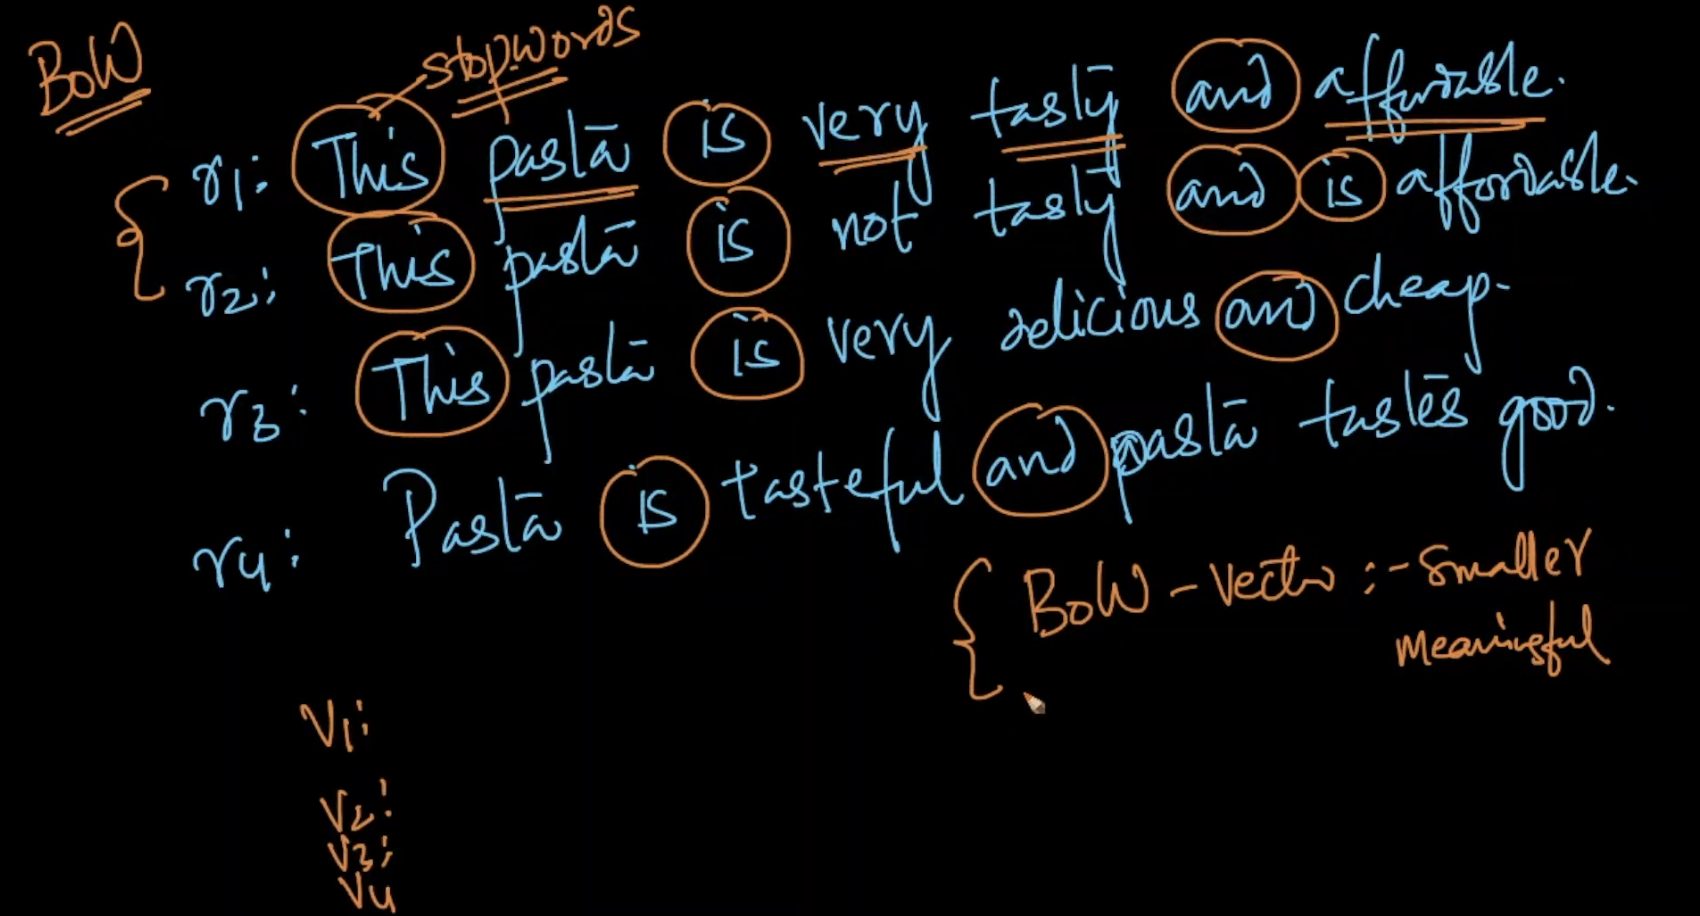 BoW
stopwords
r1: This pasta is very tasty and affordable.
r2: This pasta is not tasty and is affordable.
r3: This pasta is very delicious and cheap.
r4: Pasta is tasteful and pasta tastes good.
BoW - Vector :- Smaller
meaningful
V1:
V2:
V3:
V4